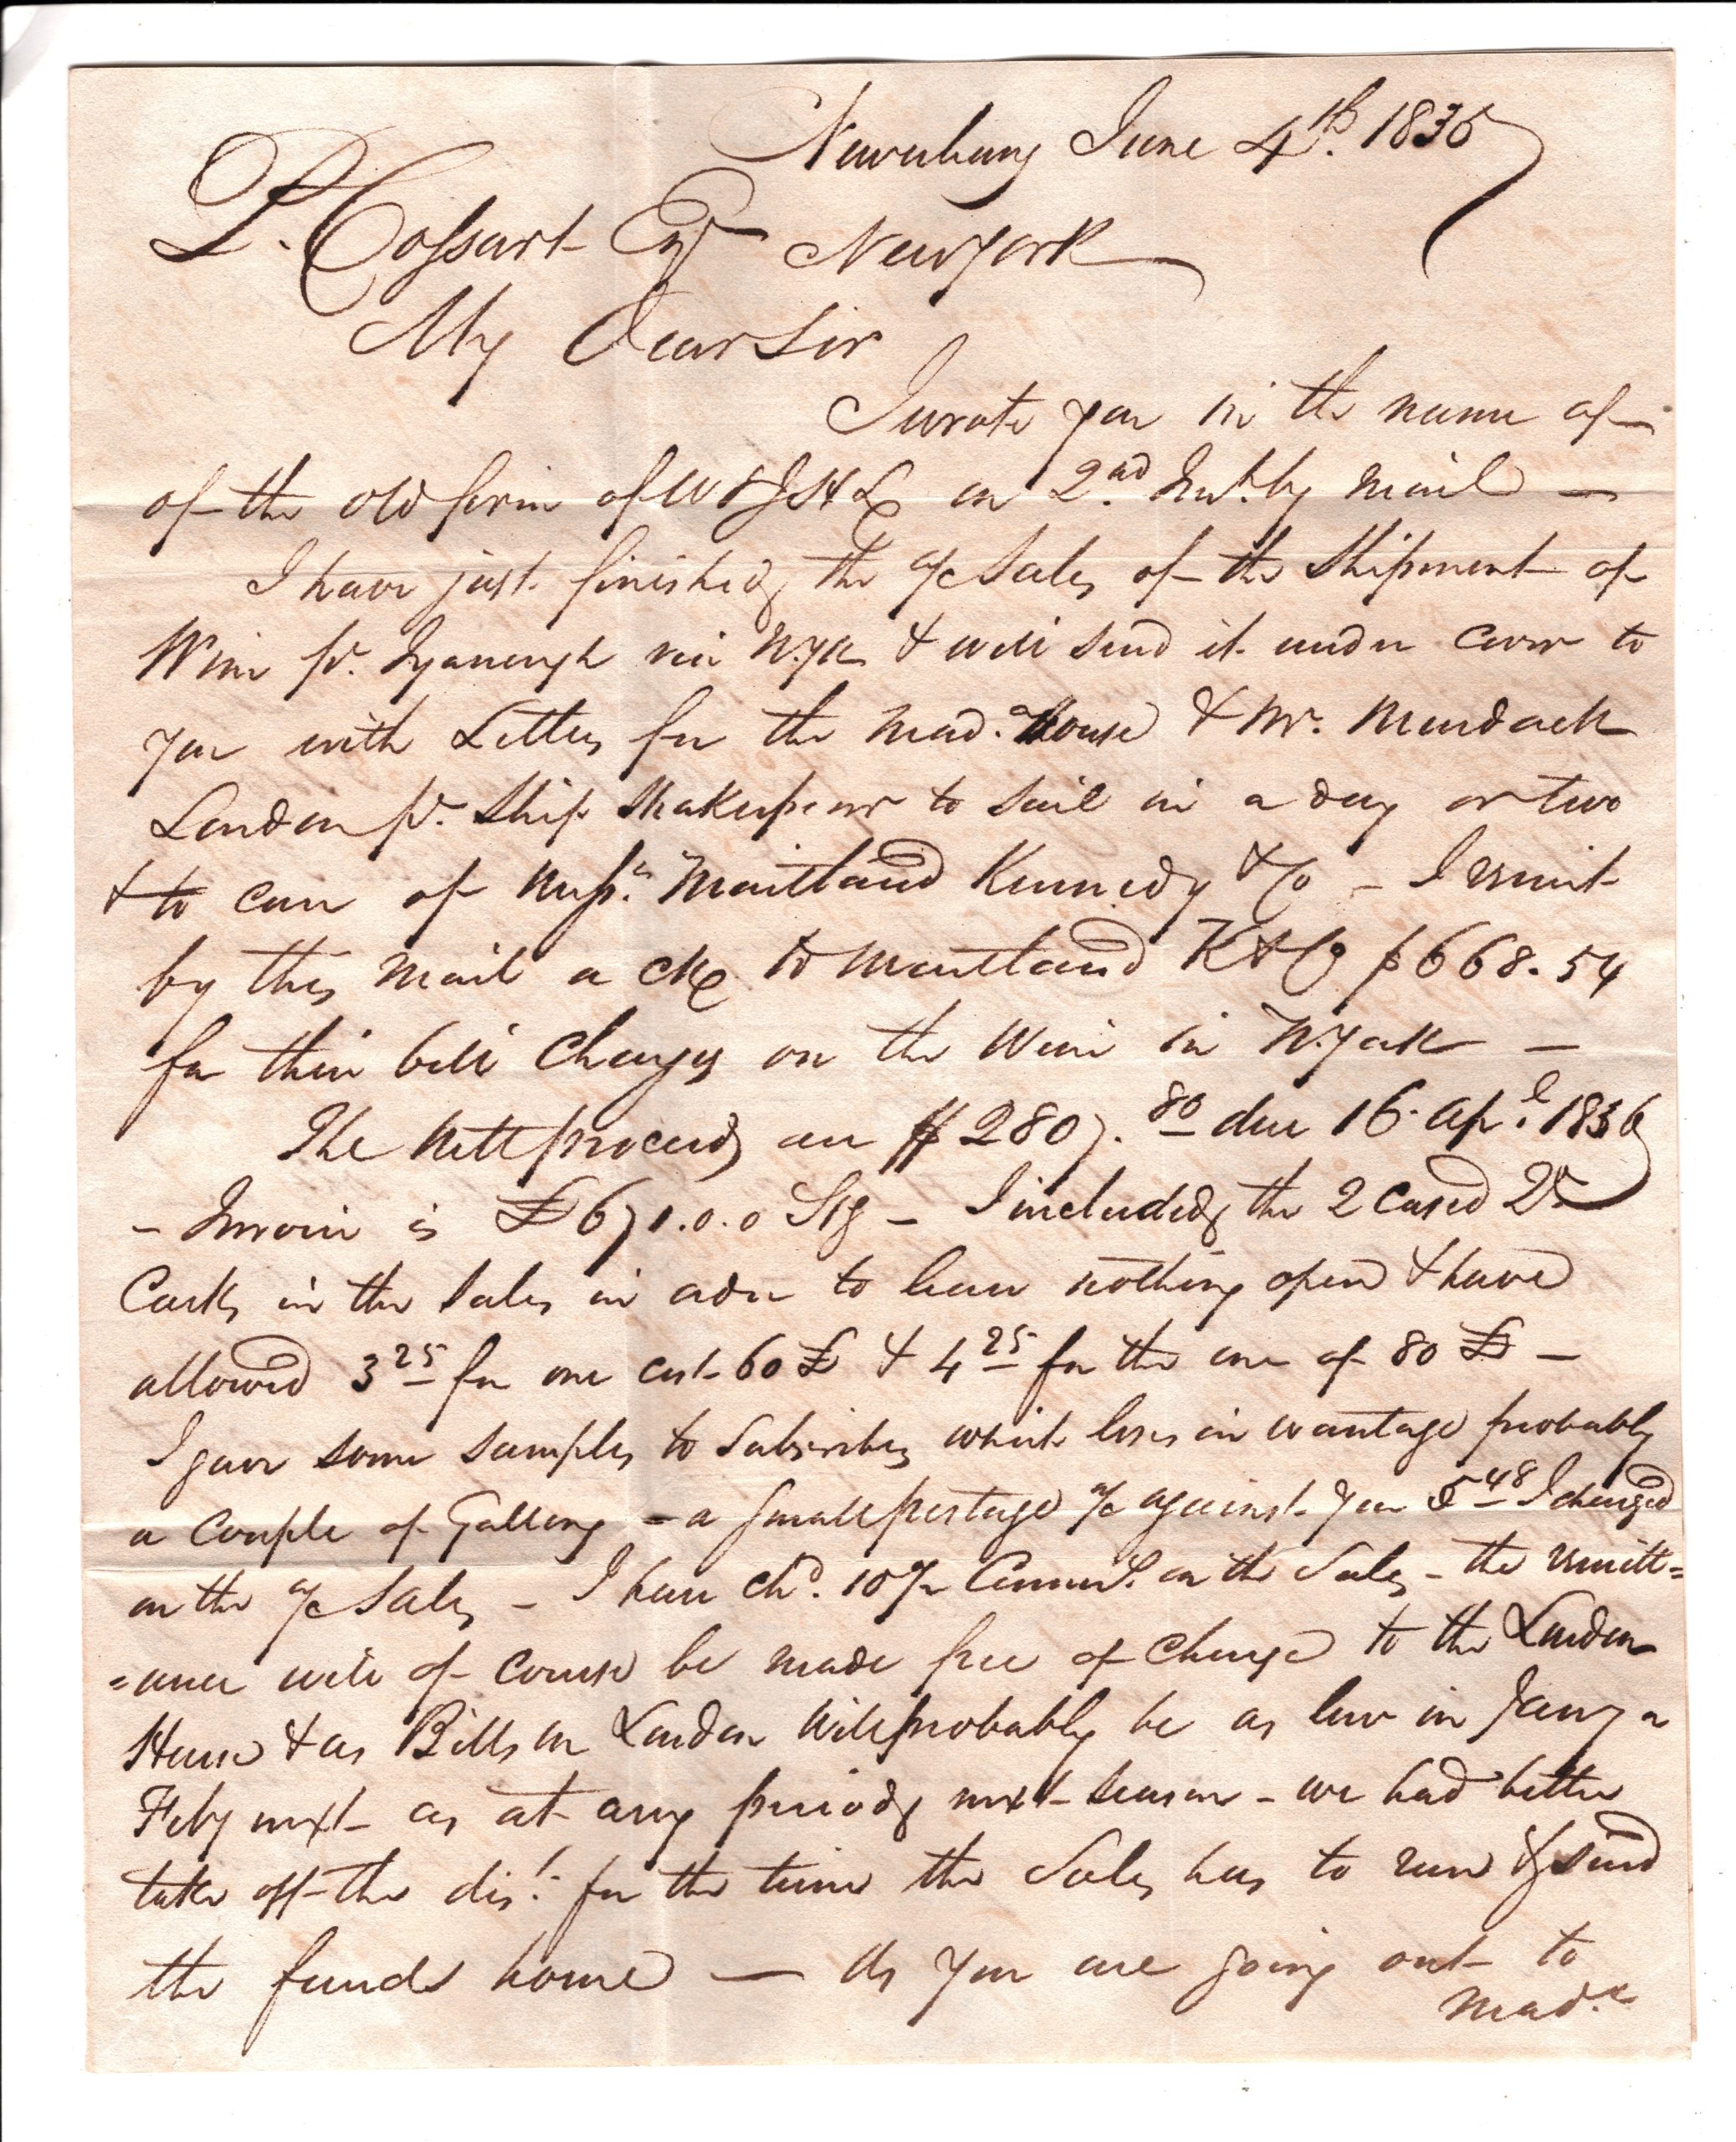 June 4th. 1835
P. Cossart Esqr New York
My Dear Sir
I wrote you in the name of
of the old firm of W & J H L on 2nd Inst. by mail —
I have just finished the a/c Sales of the Shipment of
Wine pr. via N.Yk & will send it under cover to
you with Letters for the Mad.a House & Mr. Murdock
London pr. Ship Shakespear to sail in a day or two
& to care of Messrs. Maitland Kennedy & Co – I remit
by this mail a ck to Maitland K & Co $668.54
for their bill Charges on the Wine in N.York —
The Nett proceeds are $2807.80 due 16 Apl. 1836
– Invoice is £671.0.0 Stg – I included the 2 cased Qr
Casks in the Sales in order to leave nothing open & have
allowed 3 25 for one cost 60 £ & 4 25 for the one of 80 £ —
I gave some samples to Subscribers which loses in wantage probably
a Couple of Gallons – a small postage a/c against you $5 48 I charged
on the a/c Sales – I have chd. 10 % Commn. on the Sales – the remitt=
=ance will of course be made free of charge to the London
House & as Bills on London will probably be as low in Jany or
Feby next as at any period next season – we had better
take off the dist. for the time the Sales has to run & send
the funds home — As you are going out to
Mad.a